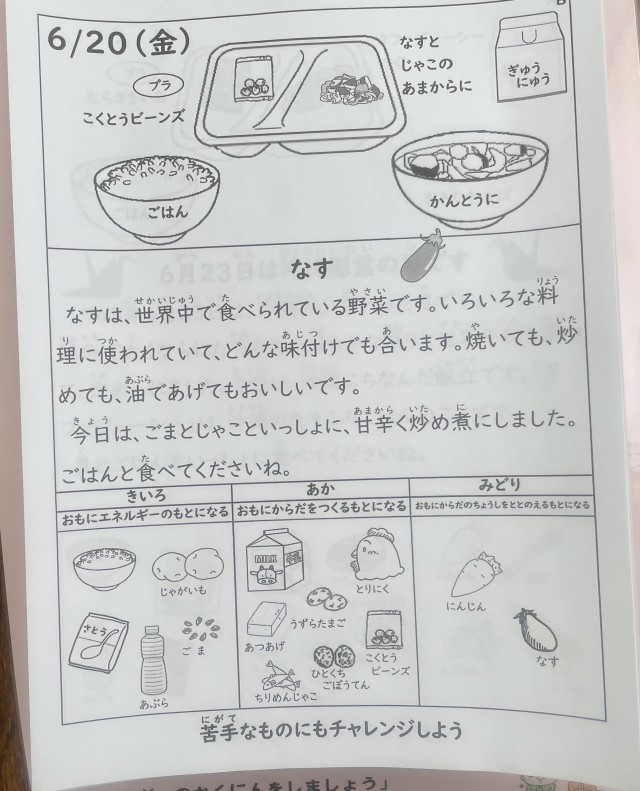 6/20(金)
プラ
こくとうビーンズ
なすと
じゃこの
あまからに
ぎゅう
にゅう
ごはん
かんとうに
なす
なすは、世界中で食べられている野菜です。いろいろな料
理に使われていて、どんな味付けでも合います。焼いても、炒
めても、油であげてもおいしいです。
今日は、ごまとじゃこといっしょに、甘辛く炒め煮にしました。
ごはんと食べてくださいね。
きいろ
あか
みどり
おもにエネルギーのもとになる
おもにからだをつくるもとになる
おもにからだのちょうしをととのえるもとになる
じゃがいも
さとう
ごま
あぶら
MILK
とりにく
うずらたまご
あつあげ
こくとう
ビーンズ
ひとくち
ごぼうてん
ちりめんじゃこ
にんじん
なす
苦手なものにもチャレンジしよう